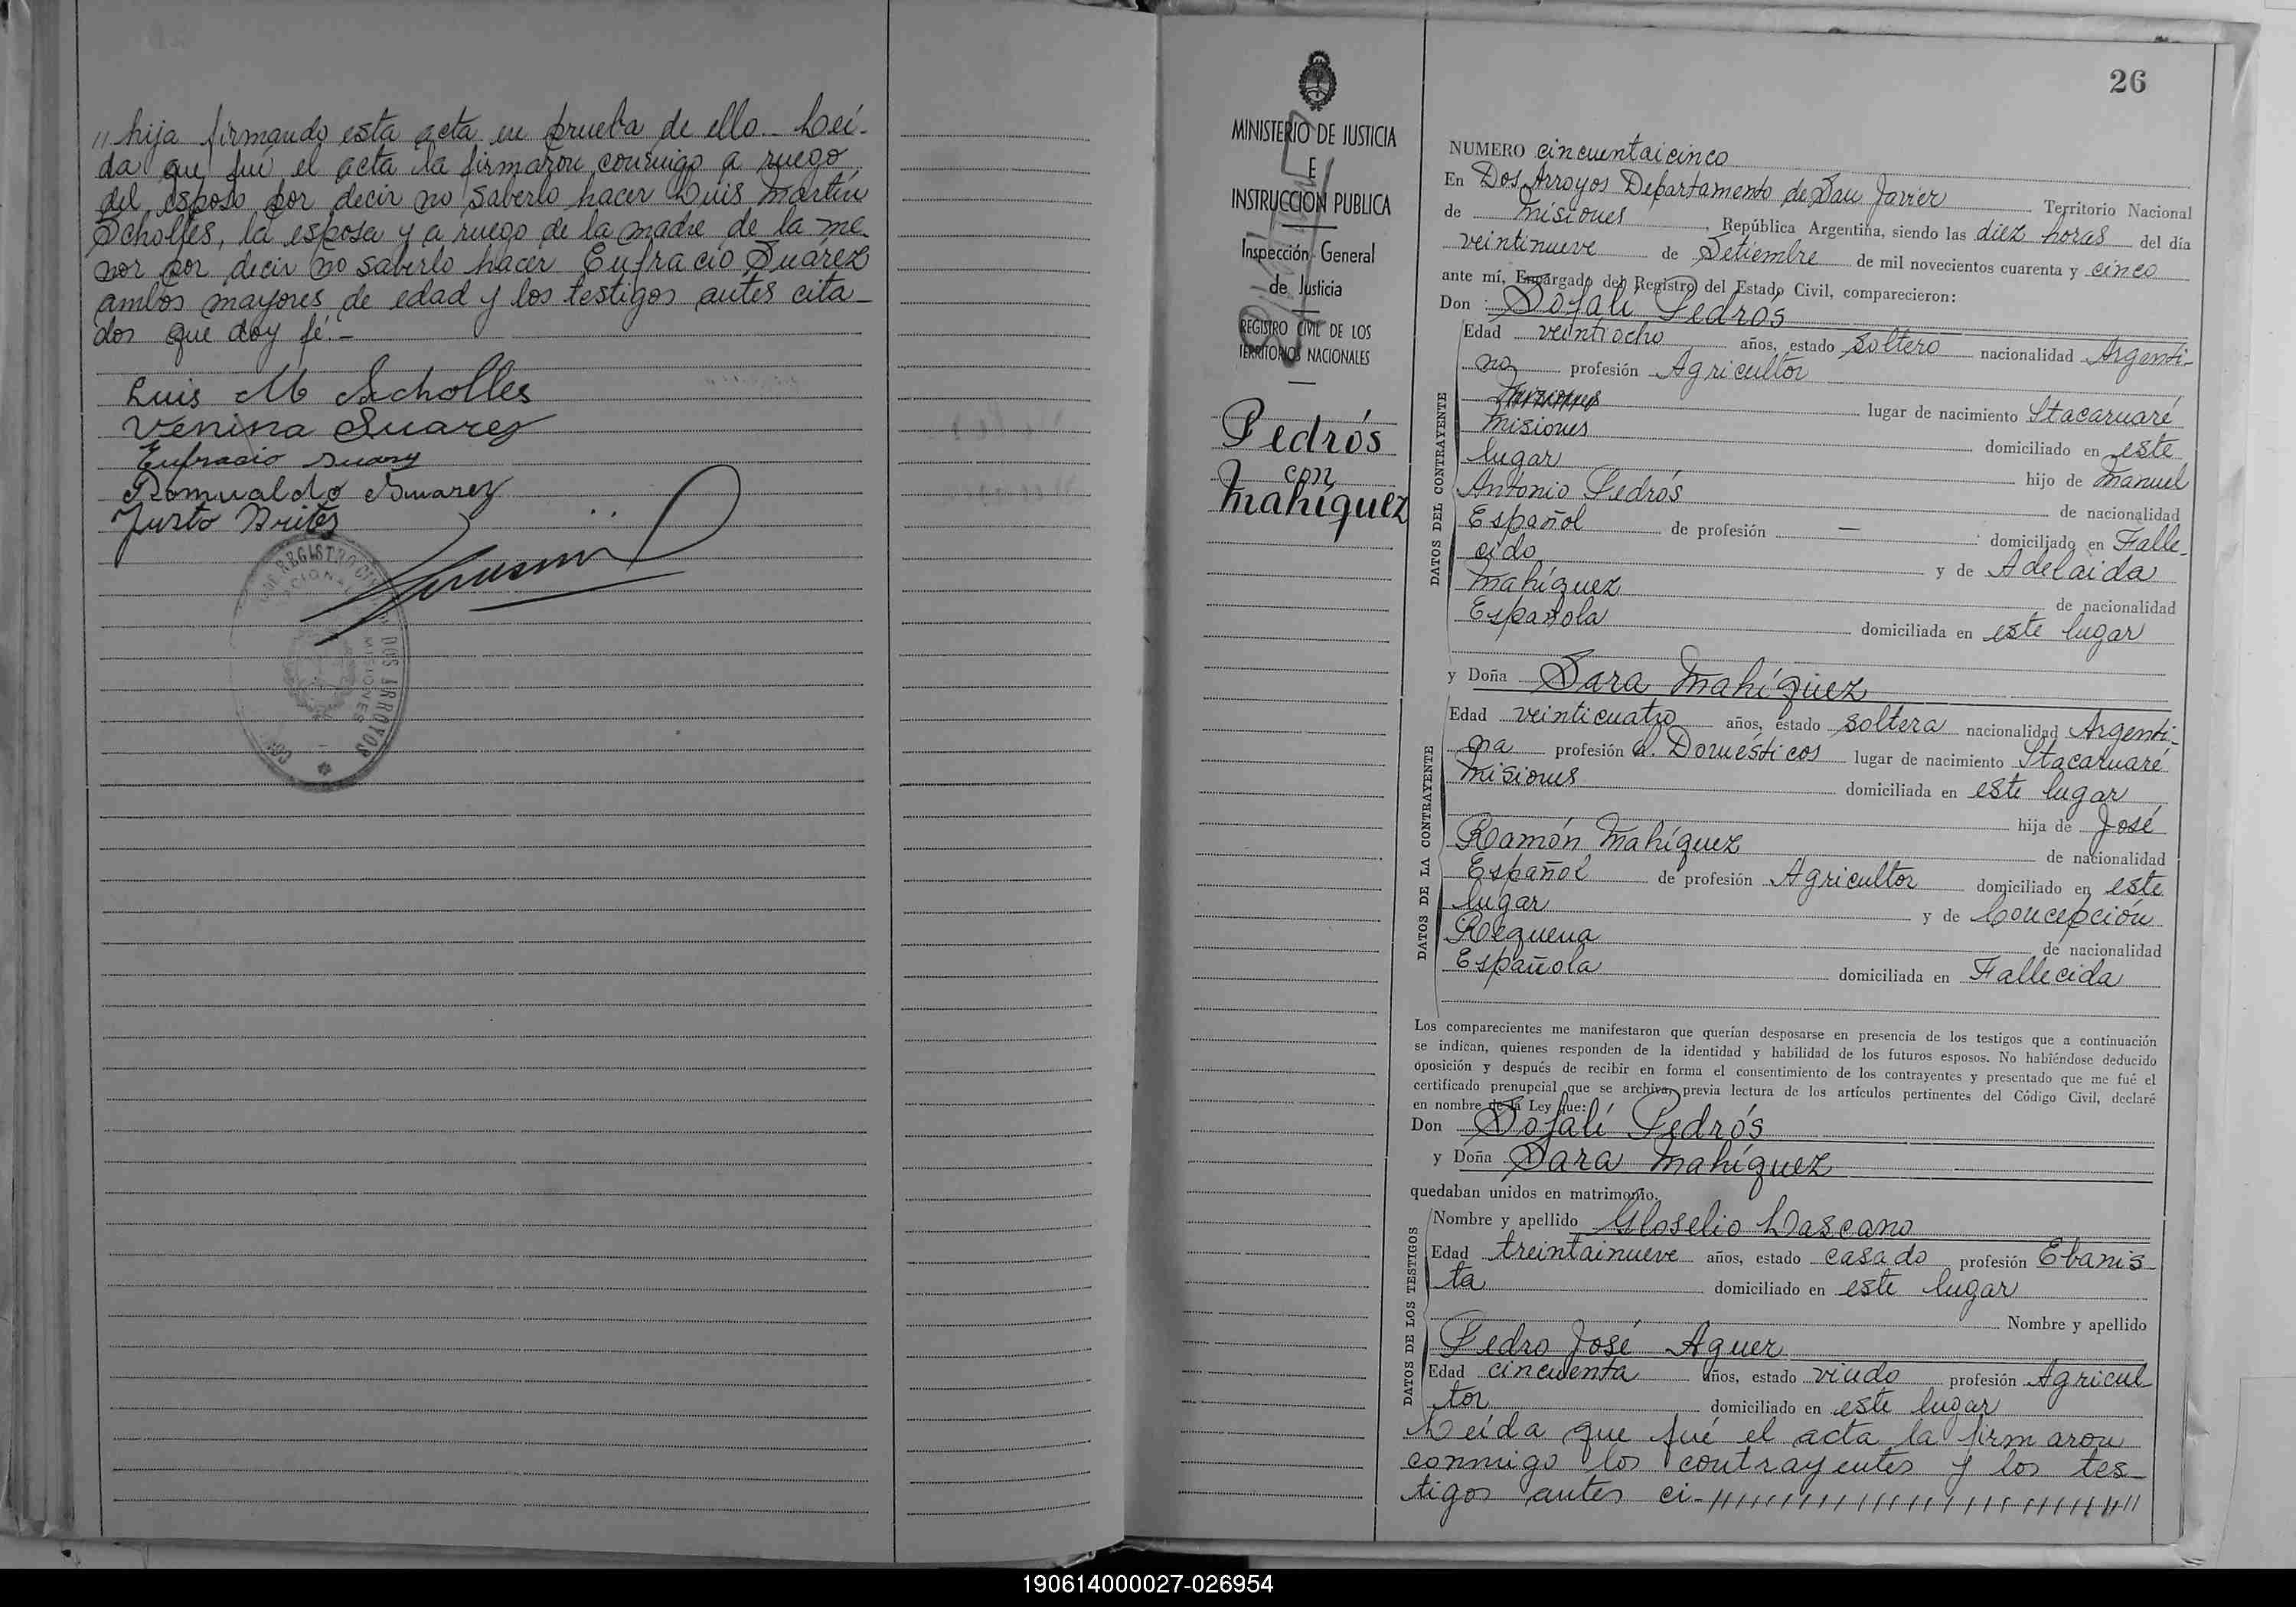 " hija firmando esta acta en prueba de ello._ Leí-
da que fué el acta la firmaron conmigo a ruego
del esposo por decir no saberlo hacer Luis Martín
Scholles, la esposa y a ruego de la madre de la me-
nor por decir no saberlo hacer Eufracio Suárez
ambos mayores de edad y los testigos antes cita-
dos que doy fé.-
Luis M Scholles
Venina Suarez
Eufracio Suarez
Romualdo Suarez
Justo Brites
REGISTRO CIVIL DOS ARROYOS
MISIONES
26
MINISTERIO DE JUSTICIA
E
INSTRUCCION PUBLICA
Inspección General
de Justicia
REGISTRO CIVIL DE LOS
TERRITORIOS NACIONALES
Pedrós
con
Mahíquez
NUMERO cincuentaicinco
En Dos Arroyos Departamento de San Javier Territorio Nacional
de Misiones, República Argentina, siendo las diez horas del día
veintinueve de Setiembre de mil novecientos cuarenta y cinco
ante mí, Encargado del Registro del Estado Civil, comparecieron:
Don Sofali Pedrós
DATOS DEL CONTRAYENTE
Edad veintiocho años, estado soltero nacionalidad Argenti-
no profesión Agricultor
lugar de nacimiento Itacaruaré
Misiones domiciliado en este
lugar hijo de Manuel
Antonio Pedrós de nacionalidad
Español de profesión — domiciliado en Falle-
cido y de Adelaida
Mahíquez de nacionalidad
Española domiciliada en este lugar
y Doña Sara Mahíquez
DATOS DE LA CONTRAYENTE
Edad veinticuatro años, estado soltera nacionalidad Argenti-
na profesión Q. Domésticos lugar de nacimiento Itacaruaré
Misiones domiciliada en este lugar
hija de José
Ramón Mahíquez de nacionalidad
Español de profesión Agricultor domiciliado en este
lugar y de Concepción
Requena de nacionalidad
Española domiciliada en Fallecida
Los comparecientes me manifestaron que querían desposarse en presencia de los testigos que a continuación
se indican, quienes responden de la identidad y habilidad de los futuros esposos. No habiéndose deducido
oposición y después de recibir en forma el consentimiento de los contrayentes y presentado que me fué el
certificado prenupcial que se archiva, previa lectura de los artículos pertinentes del Código Civil, declaré
en nombre de la Ley que:
Don Sofalí Pedrós
y Doña Sara Mahíquez
quedaban unidos en matrimonio.
DATOS DE LOS TESTIGOS
Nombre y apellido Gloselio Lascano
Edad treintainueve años, estado casado profesión Ebanis-
ta domiciliado en este lugar
Nombre y apellido
Pedro José Aguer
Edad cincuenta años, estado viudo profesión Agricul
tor domiciliado en este lugar
Leída que fué el acta la firmaron
conmigo los contrayentes y los tes-
tigos antes ci-
190614000027-026954